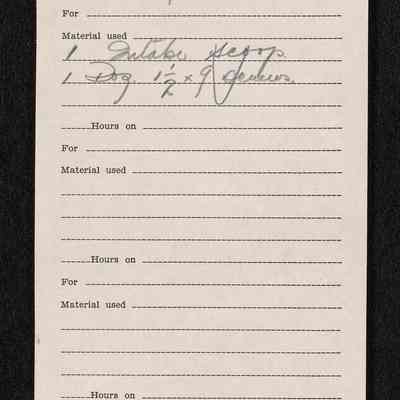 For
Material used
1 Intake Scoop
1 Doz 1 1/2 x 9 Screws.
Hours on
For
Material used
Hours on
For
Material used
Hours on